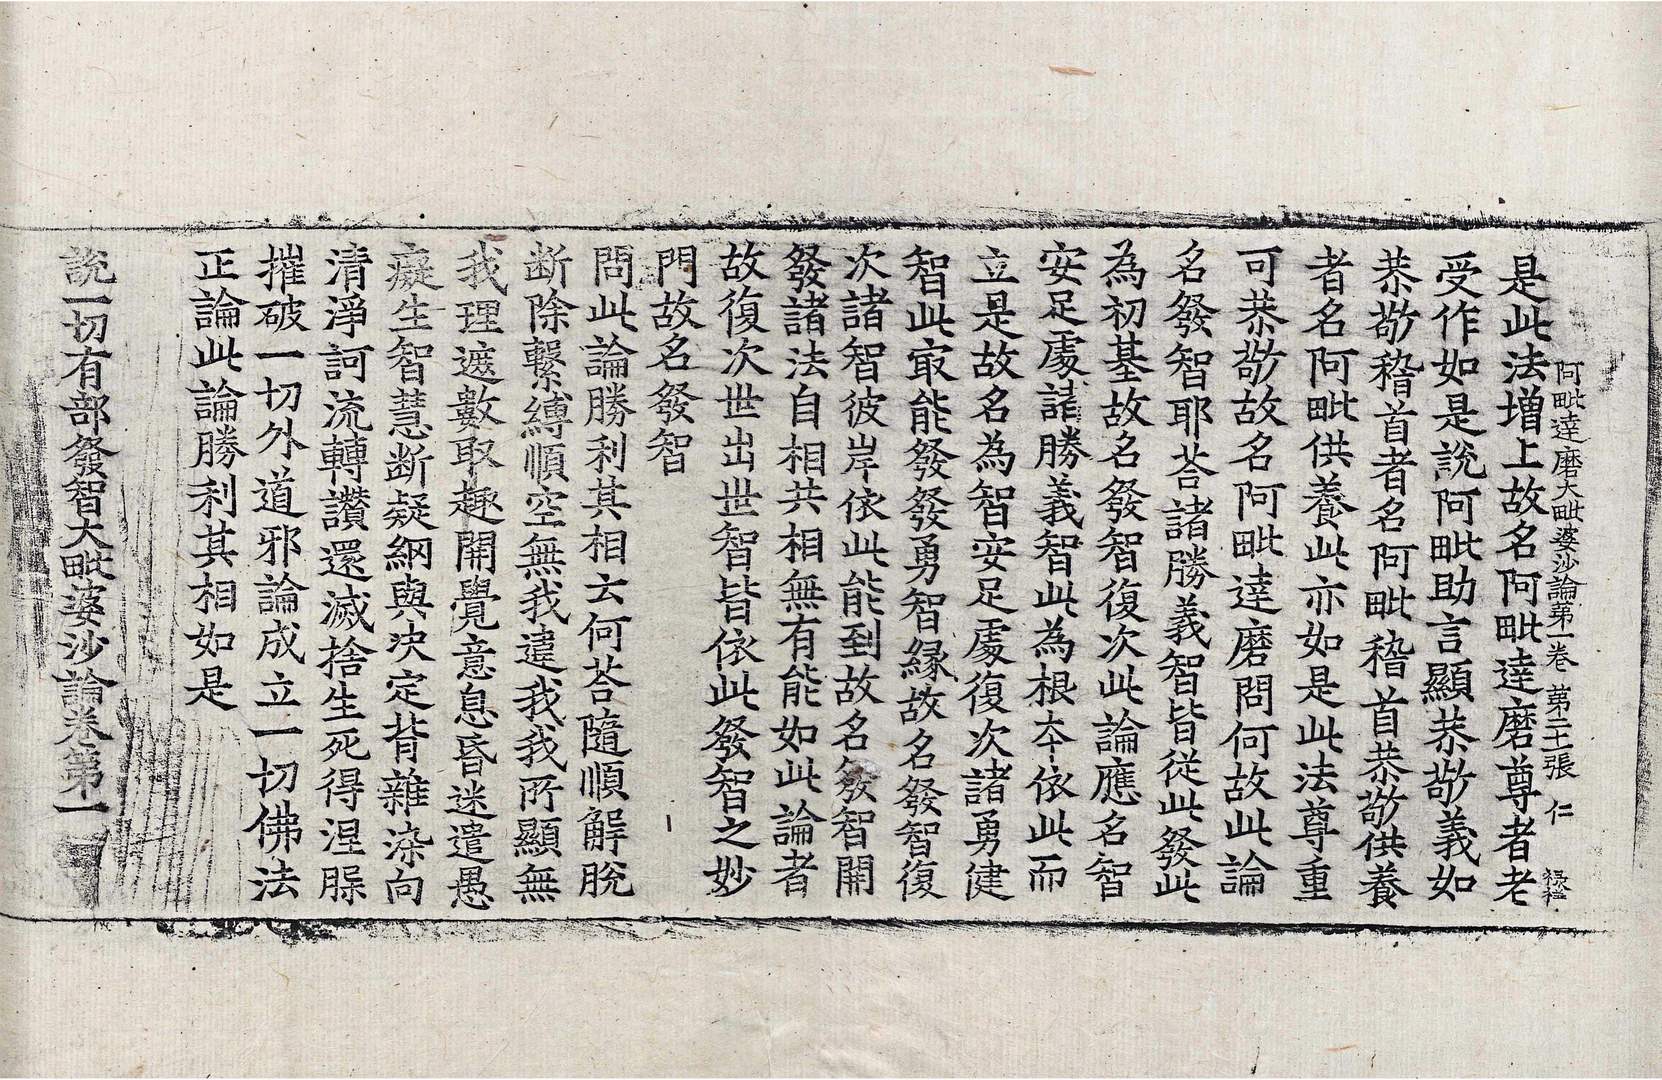 阿毗達磨大毗婆沙論第一卷 第二十張 仁
是此法增上故名阿毗達磨尊者老
受作如是說阿毗助言顯恭敬義如
恭敬稽首者名阿毗稽首恭敬供養
者名阿毗供養此亦如是此法尊重
可恭敬故名阿毗達磨問何故此論
名發智耶荅諸勝義智皆從此發此
為初基故名發智復次此論應名智
安足處諸勝義智此為根本依此而
立是故名為智安足處復次諸勇健
智此㝡能發發勇智緣故名發智復
次諸智彼岸依此能到故名發智開
發諸法自相共相無有能如此論者
故復次世出世智皆依此發智之妙
門故名發智
問此論勝利其相云何荅隨順解脫
断除繫縛順空無我違我我所顯無
我理遮數取趣開覺意息昏迷遣愚
癡生智慧断疑網與決定背雜染向
清淨訶流轉讚還滅捨生死得涅槃
摧破一切外道邪論成立一切佛法
正論此論勝利其相如是
說一切有部發智大毗婆沙論卷第一